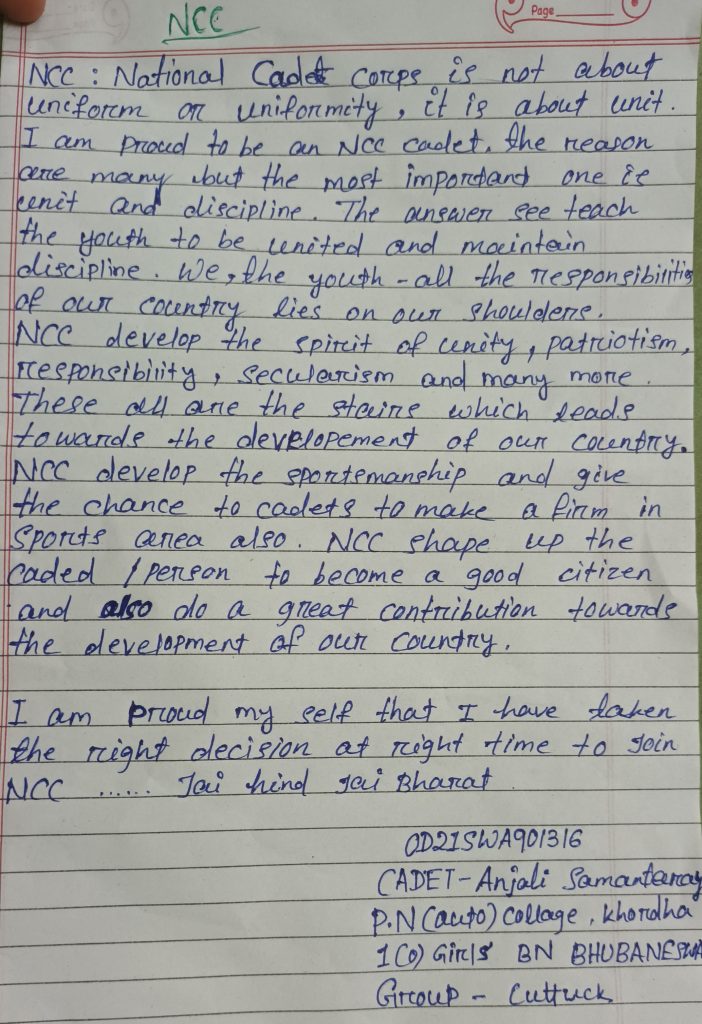 Page
NCC
NCC : National Cadet corps is not about
uniform or uniformity, it is about unit.
I am proud to be an NCC cadet. the reason
are many but the most impordand one is
unit and discipline. The answer see teach
the youth to be united and maintain
discipline. We, the youth - all the responsibilities
of our country lies on our shoulders.
NCC develop the spirit of unity, patriotism,
responsibility, secularism and many more.
These all are the stairs which leads
towards the developement of our country.
NCC develop the sportsmanship and give
the chance to cadets to make a firm in
Sports area also. NCC shape up the
caded / person to become a good citizen
and also do a great contribution towards
the development of our country.
I am proud my self that I have taken
the right decision at right time to join
NCC ...... Jai hind Jai Bharat
OD21SWA901316
CADET - Anjali Samantaray
P.N (auto) collage, khordha
1 (O) Girls BN BHUBANESWA
Group - Cuttuck